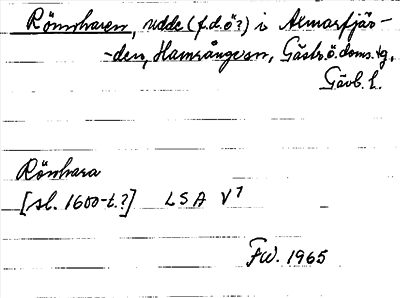 Rönnharen, udde (f.d.ö?) i Axmarfjär-
den, Hamrångesn, Gästr.ö.doms.tg,
Gävb.l.
Rönhara
[sl. 1600-t.?] LSA V7
FW. 1965